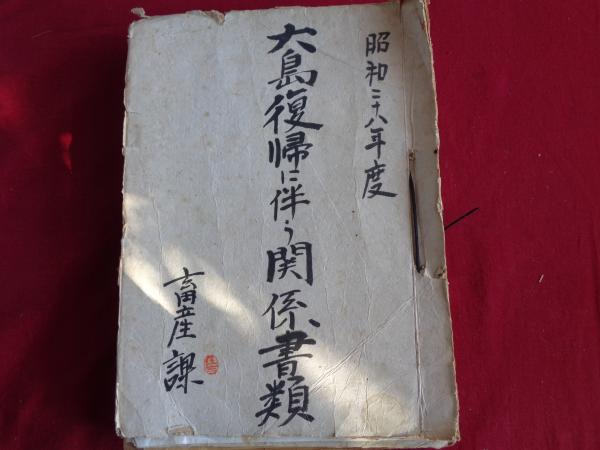 昭和二十八年度
大島復帰に伴う関係書類
畜産課